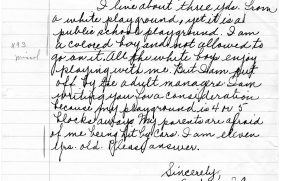 I live about three yds. from
a white playground, yet it is a
public school playground. I am
a colored boy and not allowed to
go on it. All the white boys enjoy
playing with me. But I am put
off by the adult managers. I am
writing you for a consideration
because my playground is 4 or 5
blocks away. My parents are afraid
of me being hit by cars. I am eleven
yrs. old. Please answer.
Sincerely,